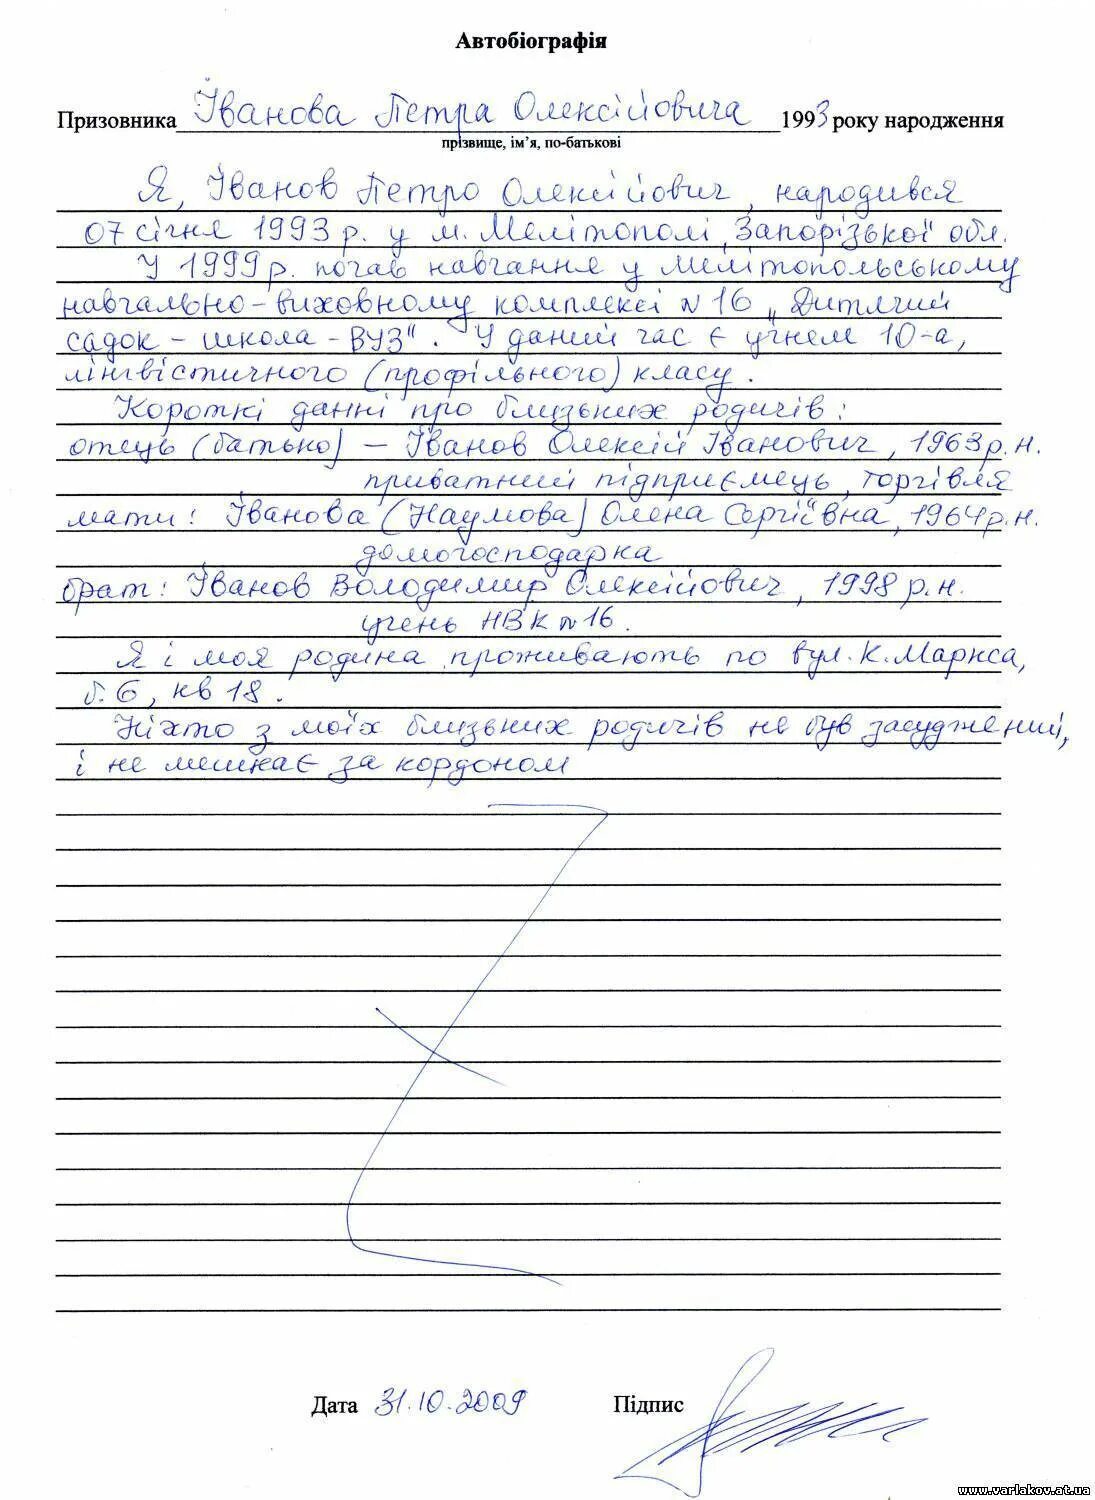 Автобіографія
Призовника Іванова Петра Олексійовича 1993 року народження
прізвище, ім'я, по-батькові
Я, Іванов Петро Олексійович, народився
07 січня 1993 р. у м. Мелітополі, Запорізької обл.
У 1999 р. почав навчання у Мелітопольському
навчально-виховному комплексі №16 „Дитячий
садок - школа - ВУЗ". У даний час є учнем 10-а,
лінгвістичного (профільного) класу.
Короткі данні про близьких родичів:
отець (батько) – Іванов Олексій Іванович, 1963 р.н.
приватний підприємець, торгівля
мати: Іванова (Наумова) Олена Сергіївна, 1964 р.н.
домогосподарка
брат: Іванов Володимир Олексійович, 1998 р.н.
учень НВК №16.
Я і моя родина проживають по вул. К. Маркса,
б. 6, кв 18.
Ніхто з моїх близьких родичів не був засуджений,
і не мешкає за кордоном
Дата 31.10.2009 Підпис
www.varlakov.at.ua